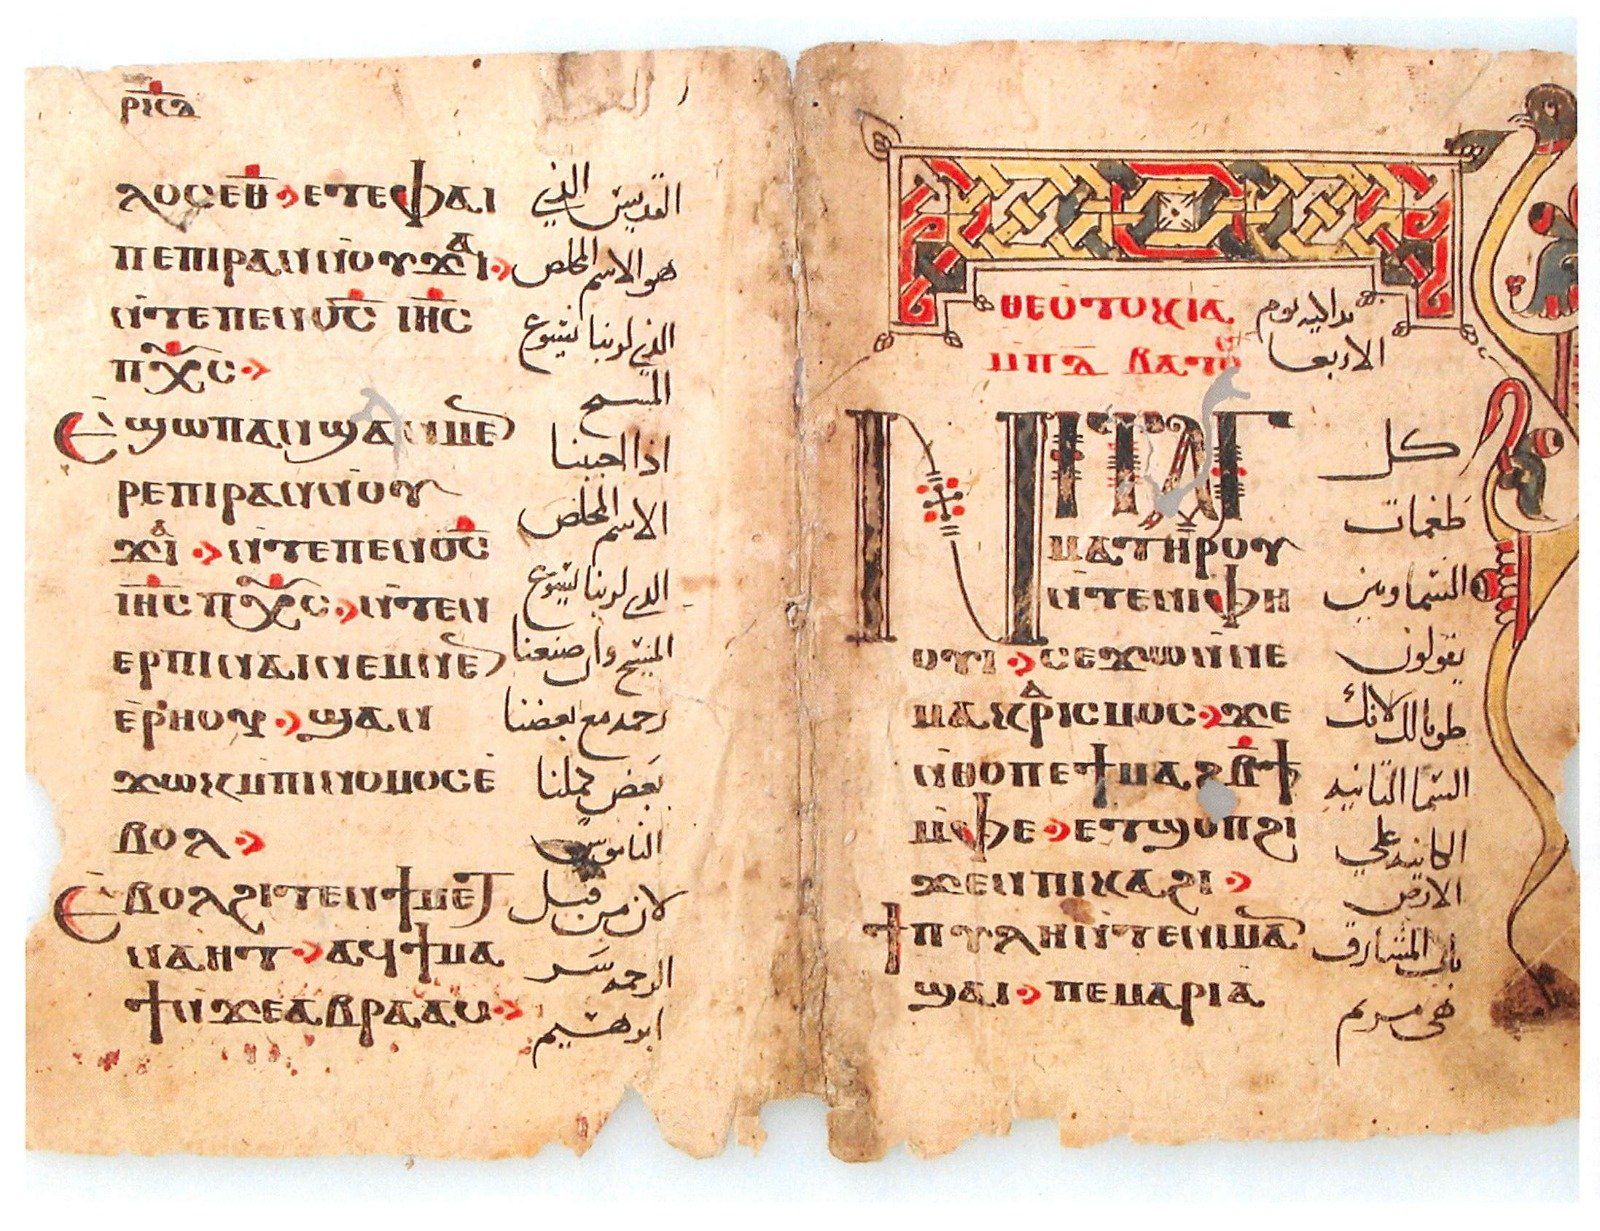 ⲗⲟⲥⲉⲑ̅ ⲉⲧⲉⲫⲁⲓ
ⲡⲉⲡⲓⲣⲁⲛⲛ̀ⲟⲩϫⲁⲓ
ⲛ̀ⲧⲉⲡⲉⲛⲟ̅ⲥ̅ ⲓⲏ̅ⲥ̅
ⲡⲭ̅ⲥ̅
ⲉ̀ϣⲱⲡⲁⲛϣⲁⲛⲙⲉ
ⲣⲉⲡⲓⲣⲁⲛⲛ̀ⲟⲩ
ϫⲁⲓ ⲛ̀ⲧⲉⲡⲉⲛⲟ̅ⲥ̅
ⲓⲏ̅ⲥ̅ ⲡⲭ̅ⲥ̅ ⲛ̀ⲧⲉⲛ
ⲉⲣⲡⲓⲛⲁⲓⲛⲉⲙⲛⲉⲛ
ⲉⲣⲏⲟⲩ ϣⲁⲛ
ϫⲱⲕⲙ̀ⲡⲓⲛⲟⲙⲟⲥⲉ̀
ⲃⲟⲗ
ⲉ̀ⲃⲟⲗϩⲓⲧⲉⲛϯⲙⲉⲧ
ⲛⲁⲏⲧ ⲁϥϯⲙⲁ
ϯⲛ̀ϫⲉⲁⲃⲣⲁⲁⲙ
القديس الذي
هو الاسم المخلص
الذي لربنا يسوع
المسيح
اذا احببنا
الاسم المخلص
الذي لربنا يسوع
المسيح وان صنعنا
رحمه مع بعضنا
بعض كملنا
الناموس
لان من قبل
الرحمه سر
ابرهيم
ⲑⲉⲟⲧⲟⲕⲓⲁ
ⲛ̀ⲓⲧⲁⲅ
ⲙⲁⲧⲏⲣⲟⲩ
ⲛ̀ⲧⲉⲛⲓⲫⲏ
ⲟⲩⲓ ⲥⲉϫⲱⲙ̀ⲛⲉ
ⲙⲁⲕⲁⲣⲓⲥⲙⲟⲥ ϫⲉ
ⲛ̀ⲑⲟⲡⲉϯⲙⲁϩⲃ̅ϯ
ⲙ̀ⲫⲉ ⲉⲧϣⲟⲡϩⲓ
ϫⲉⲛⲡⲓⲕⲁϩⲓ
ϯⲡⲩⲗⲏⲛ̀ⲧⲉⲛⲓⲙⲁⲛ
ϣⲁⲓ ⲡⲉⲙⲁⲣⲓⲁ
بداليه يوم
الاربعا
كل
طغمات
السماويين
يقولون
طوبا لك لانك
السما الثانيه
الكاينه علي
الارض
باب المشارق
هي مريم